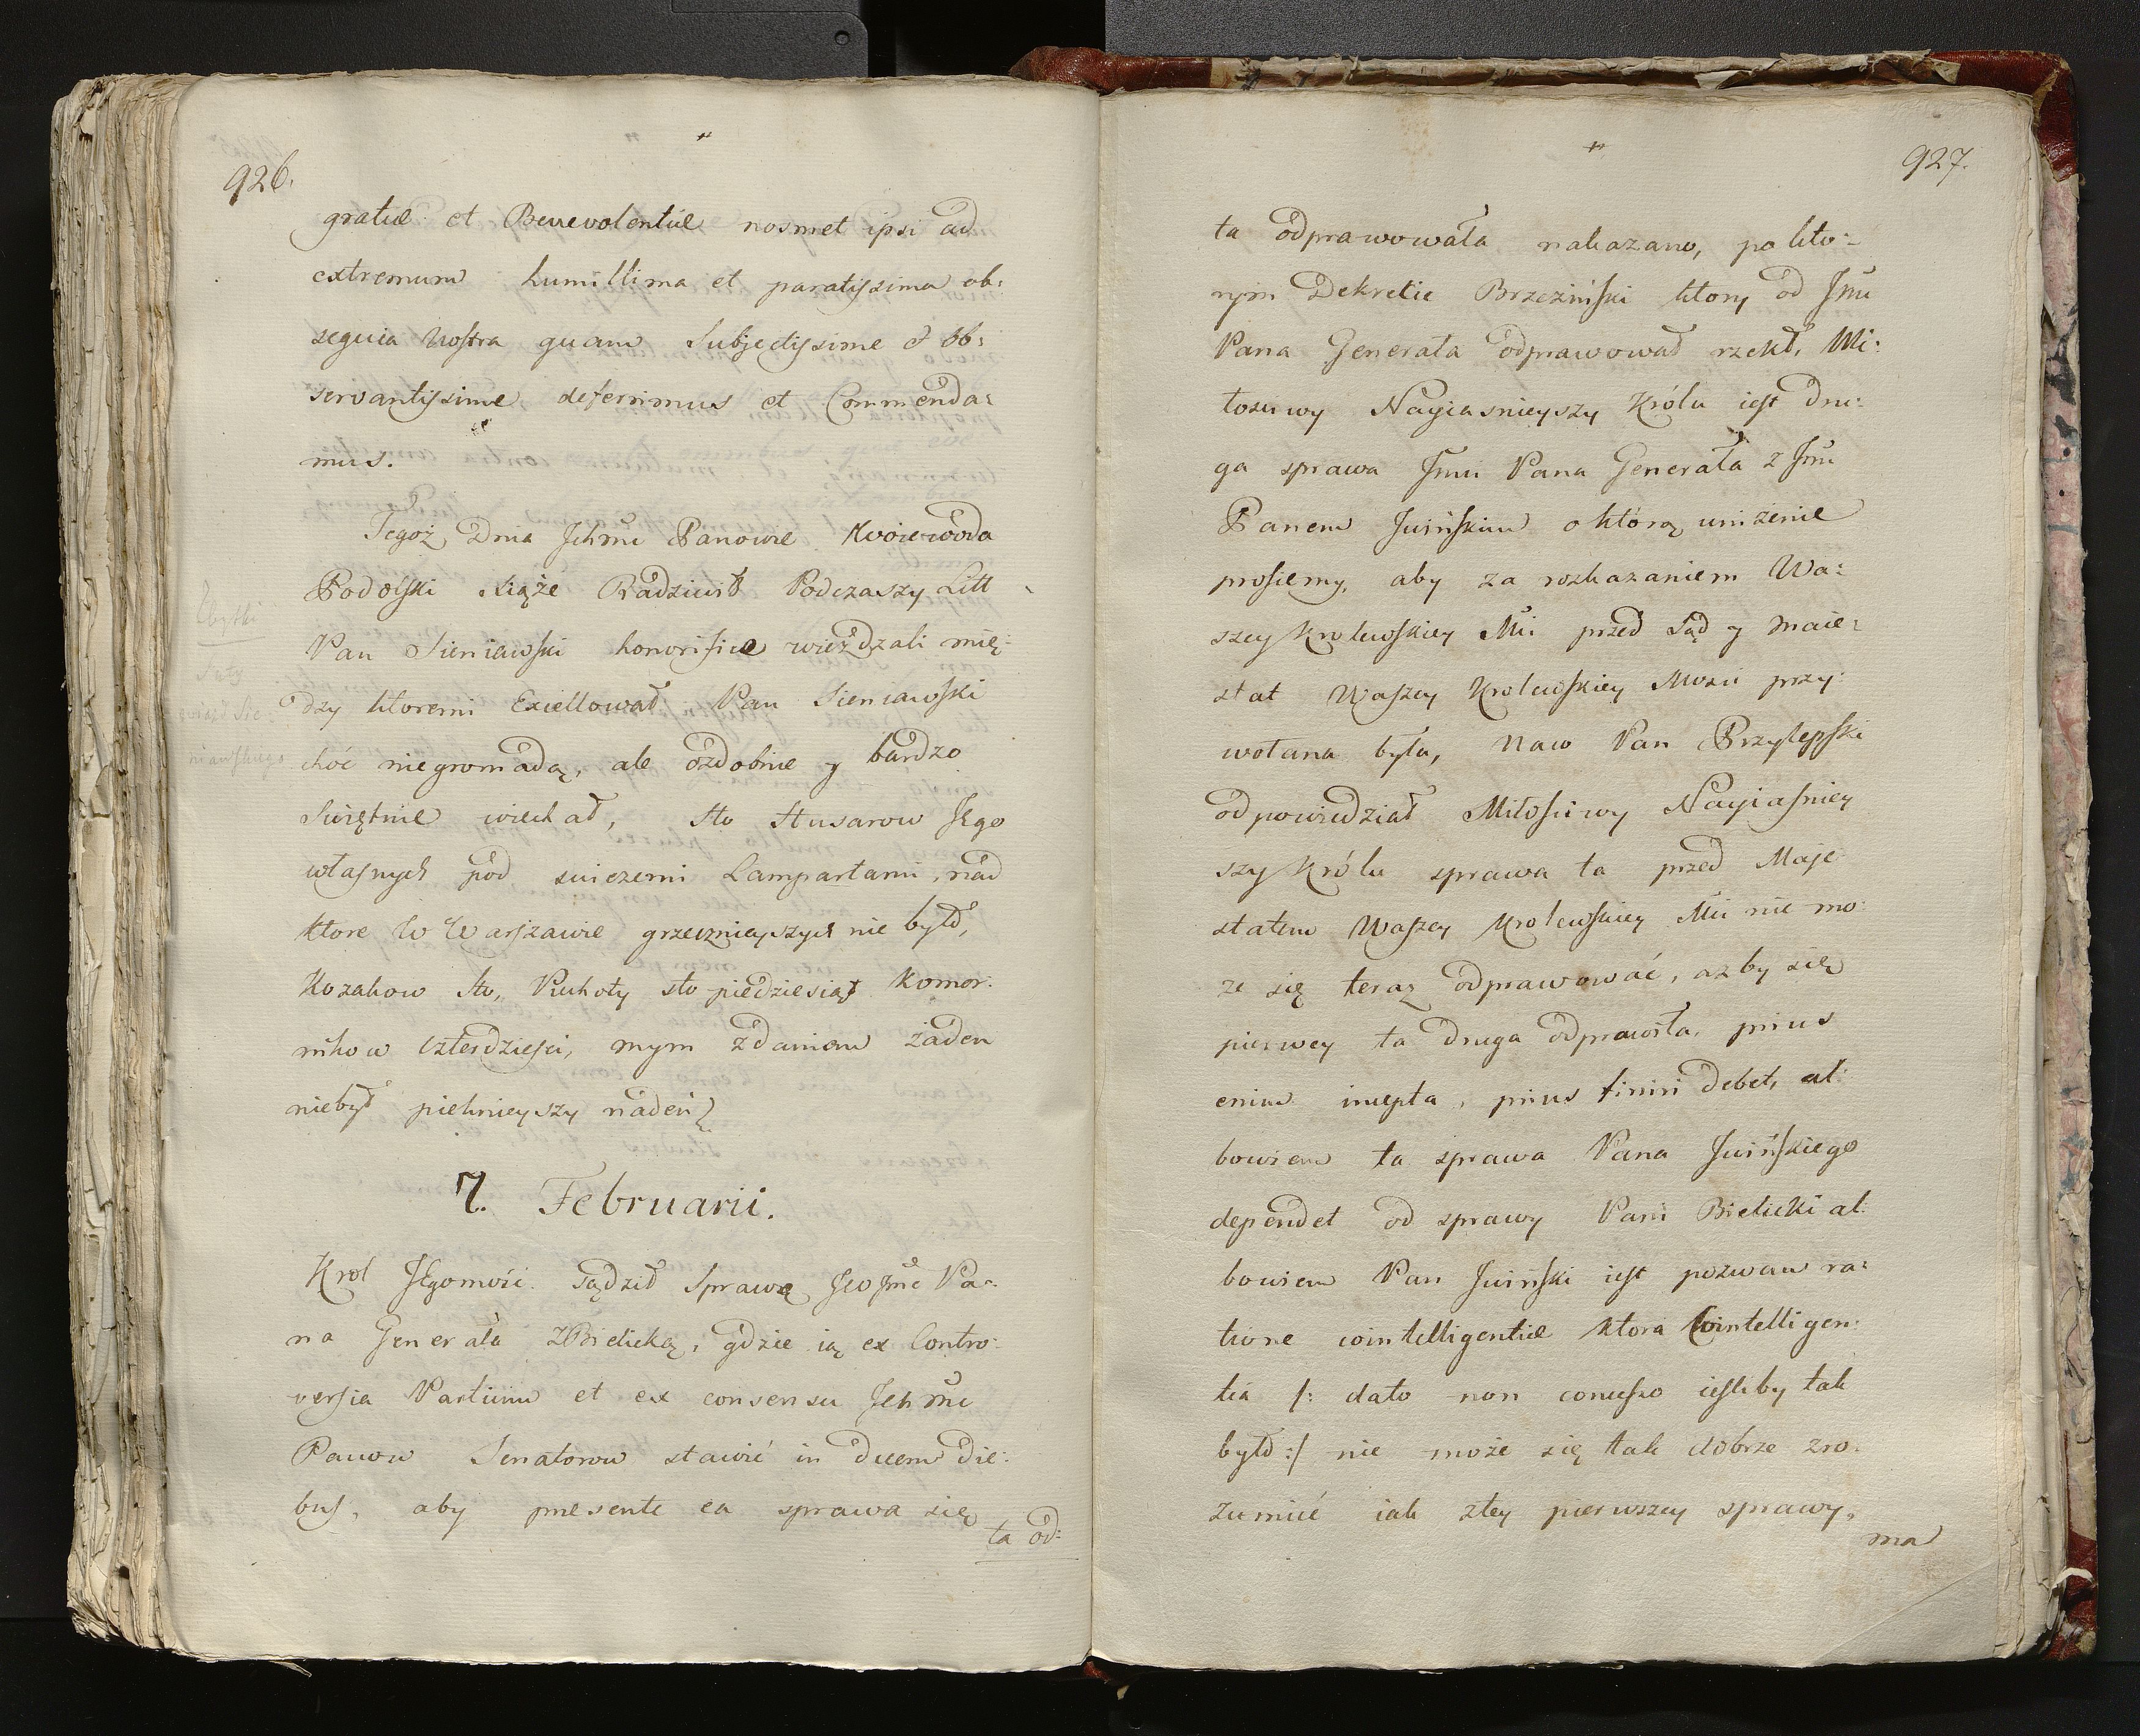 926.
gratiæ et Benevolentiæ nosmet ipsi ad
extremum humillima et paratissima ob:
sequia nostra quam Subjectissime et ob:
servantissime deferimus et Commenda:
mus.
Tegoż Dnia Ichmć Panowie Woiewoda
Podolski Xiąże Radziwił Podczaszy Litt
Pan Sieniawski honorifice wieżdżali mię:
dzy ktoremi Excellował Pan Sieniawski
choć niegromadą, ale ozdobnie y bardzo
Swiętnie wiechał, sto Husarow Jego
własnych pod swiezemi Lampartami, nad
ktore w Warszawie grzecznieyszych nie było,
Kozakow sto, Piechoty sto piędziesiąt Komor:
nikow czterdziesci, mym zdaniem żaden
niebył pieknieyszy nadeń
Zbytki
wiazd Sie:
niawskiego
7. Februarii.
Krol Jegomość Sądził Sprawę Jeo Jmć Pa:
na Generała z Bielicką, gdzie ią ex Contro:
versia Partium et ex consensu Ichmć
Panow Senatorow stawić in decem die:
bus, aby præsente ea sprawa się
ta od:
927.
ta odprawowała nakazano, po kto:
rym Dekrecie Brzeziński ktory od Jmci
Pana Generała odprawował rzekł, Mi:
łosciwy Nayiasnieyszy Królu iest dru:
ga sprawa Jmci Pana Generała z Jmci
Panem Juińskim o którą uniżenie
prosiemy, aby za rozkazaniem Wa:
szey Krolewskiey Mci przed Sąd y maie:
stat Waszey Krolewskiey Mosci przy:
wołana była, Naco Pan Przylepski
odpowiedział Miłosciwy Nayiasniey
szy Królu sprawa ta przed Maje
statem Waszey Krolewskiey Mci nie mo:
ze się teraz odprawować, azby się
pierwey ta druga odprawiła, prius
enim incepta, prius finiri debet, al:
bowiem ta sprawa Pana Juińskiego
dependet od sprawy Pani Bielicki al:
bowiem Pan Juiński iest pozwan ra:
tione cointelligentiæ ktora Cointelligen:
tia /: dato non concesso iesliby tak
było :/ nie może się tak dobrze zro:
zumieć iak z tey pierwszey sprawy,
ma